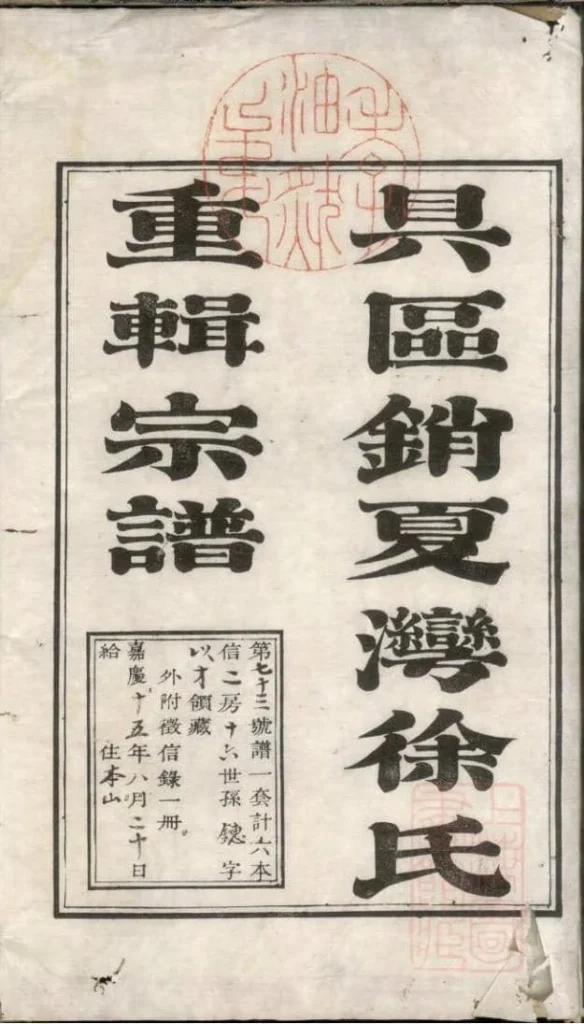 具區銷夏灣徐氏
重輯宗譜
第七十三號譜一套計六本
信二房十六世孫鏓字
以才領藏
外附徵信錄一冊。
嘉慶十五年八月二十日
給 住本山